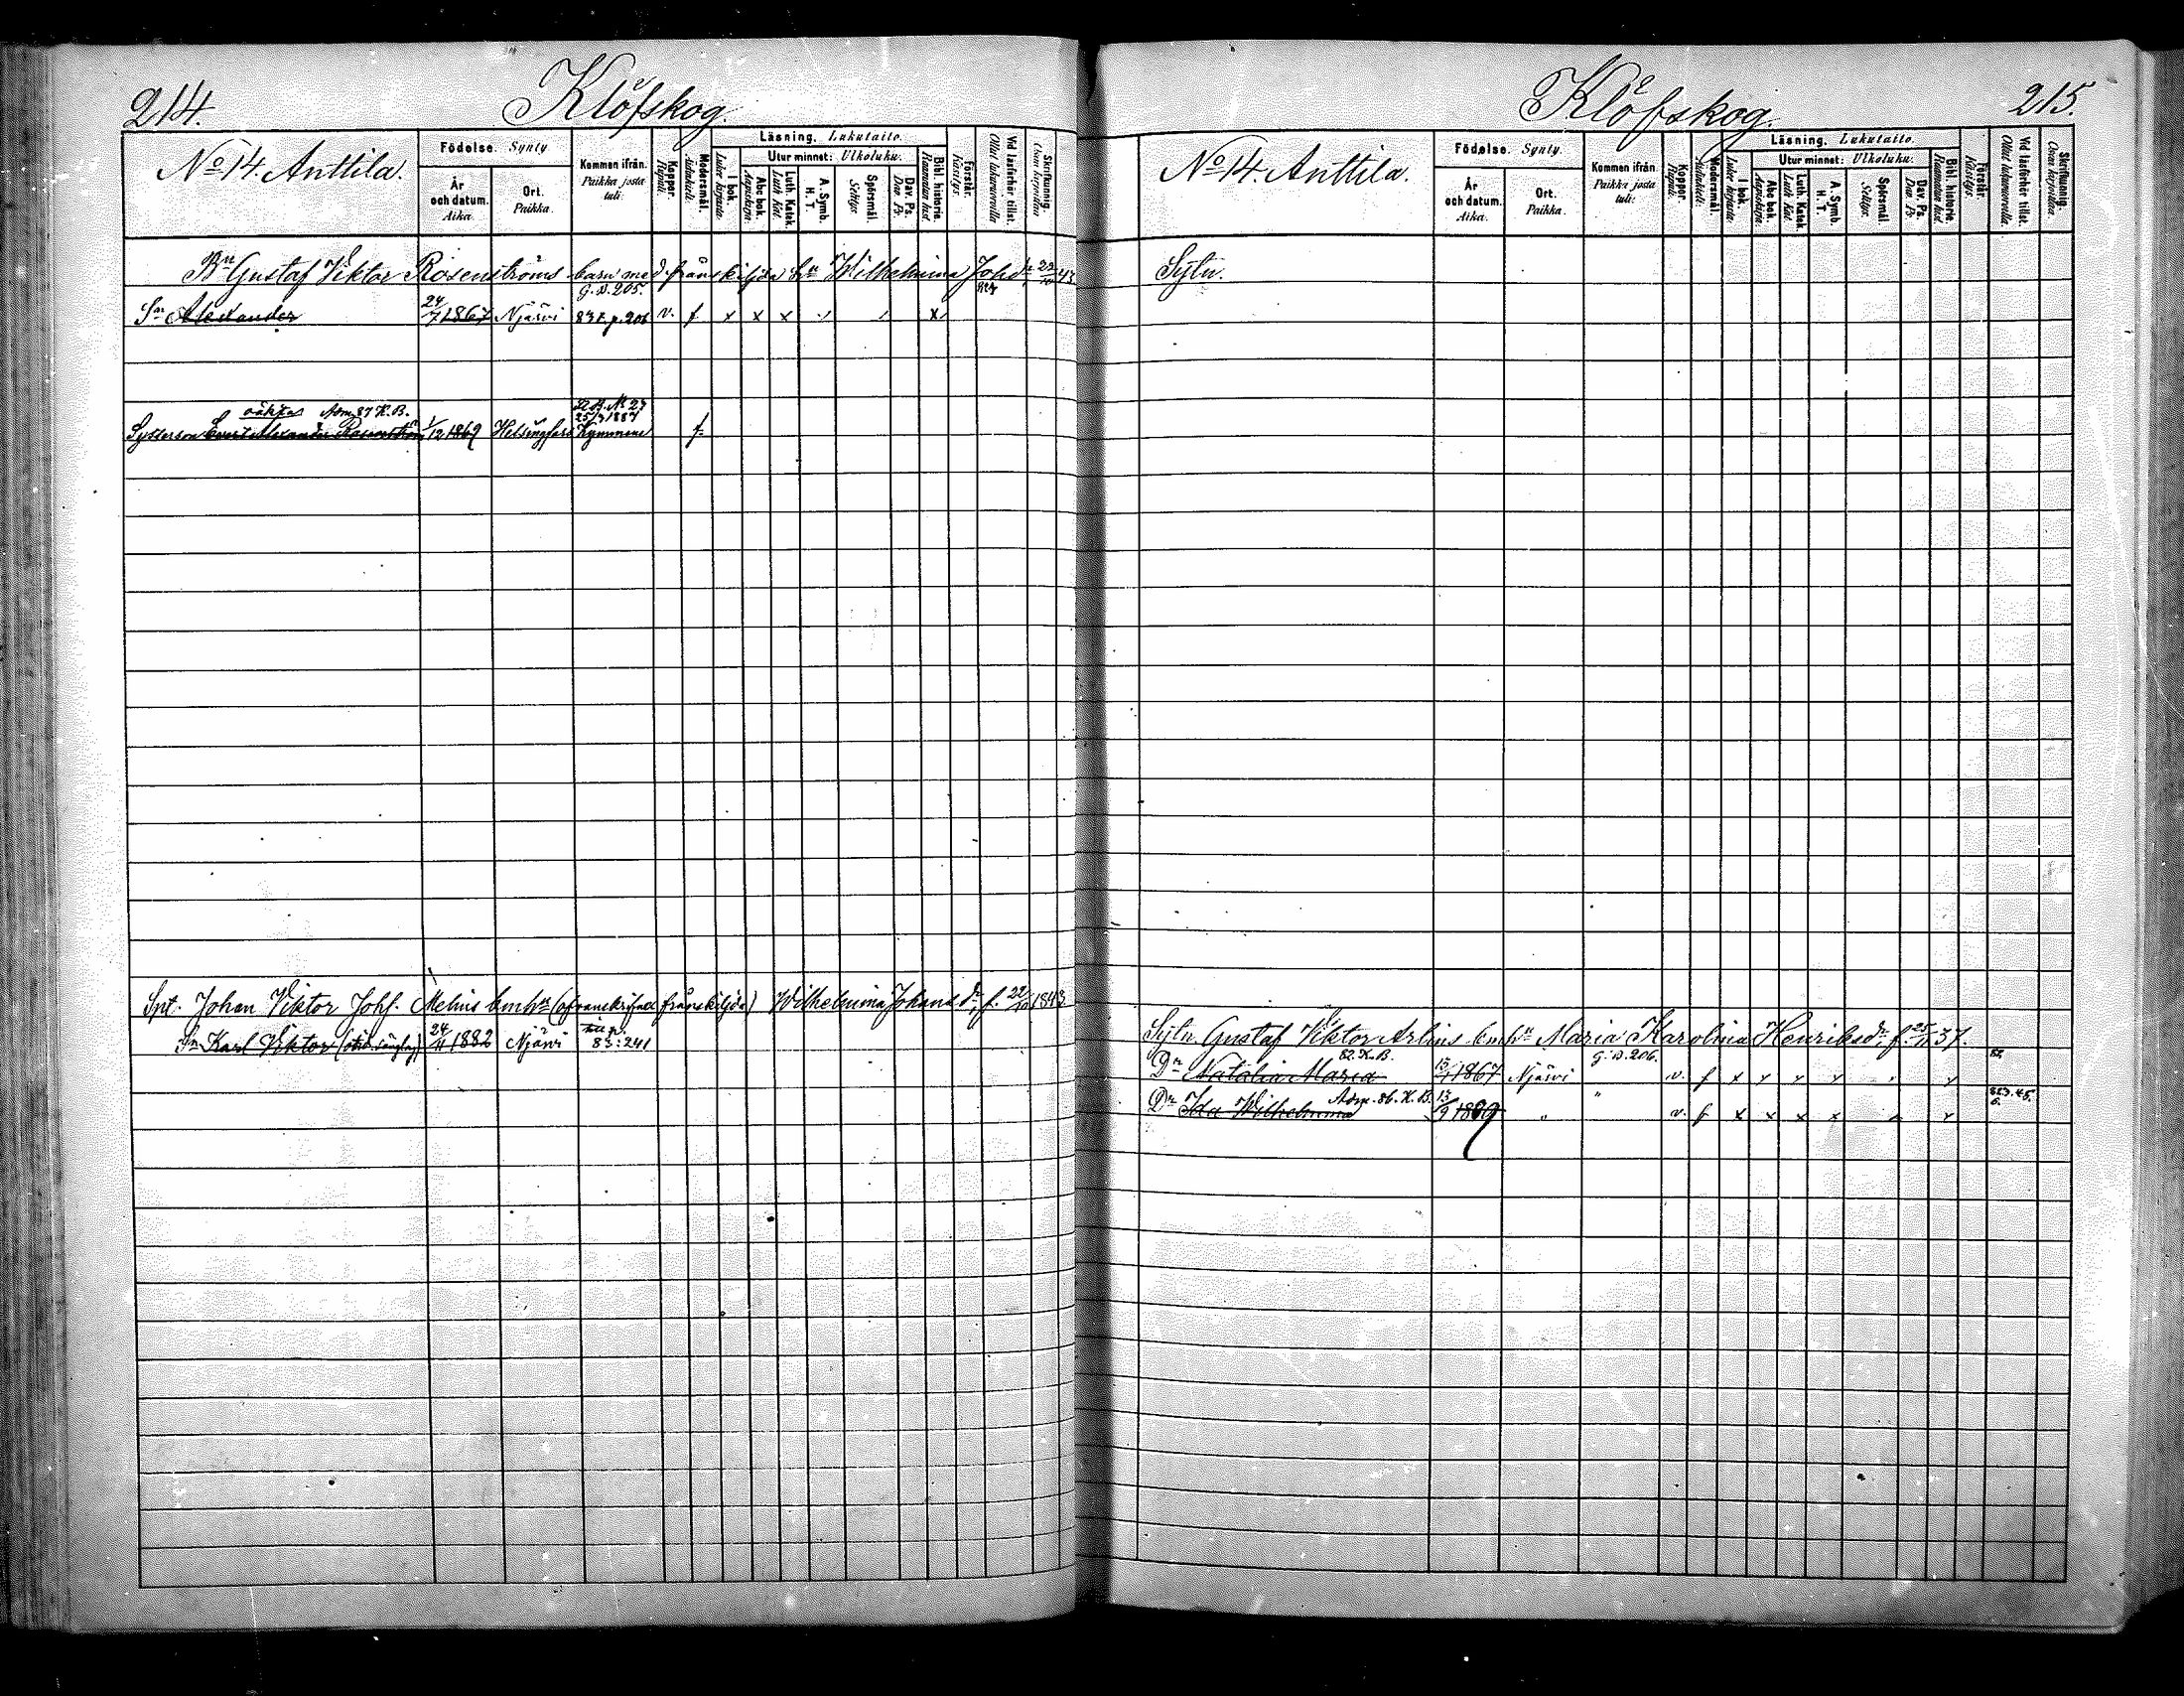 214.
Klöfskog.
No 14. Anttila.
Födelse. Synty
År och datum. Aika.
Ort. Paikka.
Kommen ifrån. Paikka josta tuli:
Koppor. Rupuli.
Modersmål. Äidinkieli:
Läsning. Lukutaito.
I bok. Luku kirjasta.
Utur minnet: Ulkoluku.
Abc bok. Aapiskirja.
Luth. Katek. Luth. Kat.
A. Symb. H. T.
Spörsmål. Selitys.
Dav. Ps. Dav. Ps.
Bibl. historie. Raamatun hist.
Förstår. Käsitys.
Vid läsförhör tillst. Ollut lukuvuorolla
Skrifkunnig. Osaa kirjoittaa
Bn Gustaf Viktor Rosenströms barn med frånskiljda hu Wilhelmina Johsdr 22/10 43
G. B. 205.
Sn Alexander 24/7 1867 Njärvi 83 t. p. 206 v. f x x x x
oäkta Adm. 87 K. B.
25/7 1887
Systerson Alexander Rosenström 1/12 1869 Helsingfors Kymmene f.
Spt. Johan Viktor Johs. Melins barn (frånskiljda) Wilhelmina Johans dr, f. 22/10 1843
Sn Karl Viktor 24/11 1882 Njärvi 83: 241
Klöfskog.
215.
No 14. Anttila.
Födelse. Synty.
År och datum. Aika.
Ort. Paikka.
Kommen ifrån. Paikka josta tuli:
Koppor. Rupuli.
Modersmål. Äidinkieli:
Läsning. Lukutaito.
I bok. Luku kirjasta.
Utur minnet: Ulkoluku.
Abc bok. Aapiskirja.
Luth. Katek. Luth. Kat.
A. Symb. H. T.
Spörsmål. Selitys.
Dav. Ps. Dav. Ps.
Bibl. historie. Raamatun hist.
Förstår. Käsitys.
Vid läsförhör tillst. Ollut lukuvuorolla
Skrifkunnig. Osaa kirjoittaa.
Sytn.
Sytn. Gustaf Viktor Arlins Maria Karolina Henriksdr f. 25/11 37.
82. K. B. G. B. 206. 82
Dn Natalia Maria 15/1 1867 Njärvi v. f x x x x
Adm. 86. K. B. "
Dn Ida Wilhelmina 13/9 1869 " v. f x x x x